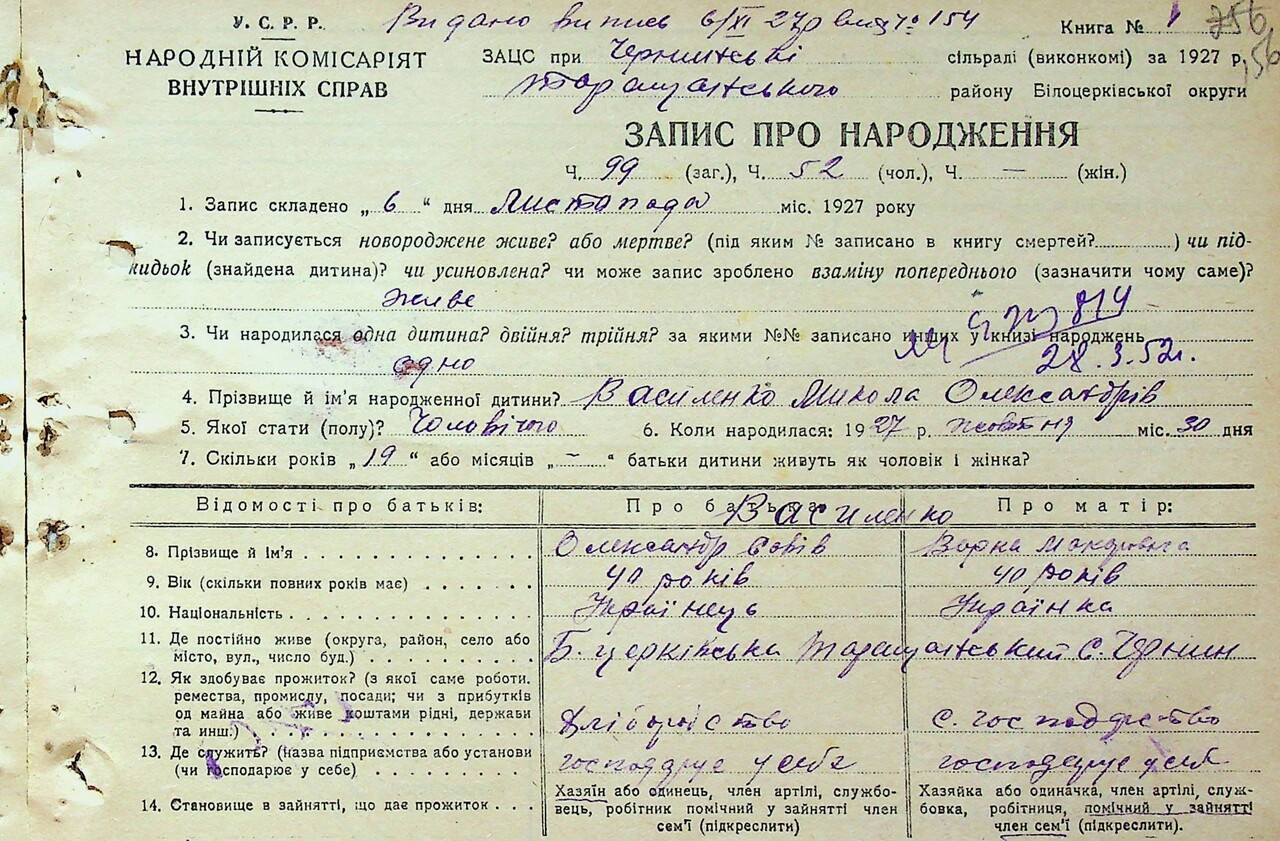 У. С. Р. Р.
Видано випись 6/XI 27р за № 154
Книга № 1
256
56
НАРОДНІЙ КОМІСАРІЯТ
ВНУТРІШНІХ СПРАВ
ЗАЦС при сільраді (виконкомі) за 1927 р.
Таращанського району Білоцерківської округи
ЗАПИС ПРО НАРОДЖЕННЯ
Ч. 99 (заг.), Ч. 52 (чол.), Ч. — (жін.)
1. Запис складено „ 6 " дня Листопада міс. 1927 року
2. Чи записується новороджене живе? або мертве? (під яким № записано в книгу смертей? ) чи під-
кидьок (знайдена дитина)? чи усиновлена? чи може запис зроблено взаміну попереднього (зазначити чому саме)?
живе
3. Чи народилася одна дитина? двійня? трійня? за якими №№ записано инших у книзі народжень
28.3.52г.
одно
4. Прізвище й ім'я народженної дитини? Василенко Микола Олександрів
5. Якої стати (полу)? Чоловічого 6. Коли народилася: 1927 р. жовтня міс. 30 дня
7. Скільки років „ 19 " або місяців „ – " батьки дитини живуть як чоловік і жінка?
Відомості про батьків: Про батька: Про матір:
Василенко
8. Прізвище й ім'я Олександр Савів Варка Макаровна
9. Вік (скільки повних років має) 40 років 40 років
10. Національність Українець Українка
11. Де постійно живе (округа, район, село або
місто, вул., число буд.) Б. церківська Таращанський с. Чернин
12. Як здобуває прожиток? (з якої саме роботи.
ремества, промислу, посади; чи з прибутків
од майна або живе коштами рідні, держави
та инш.) Хліборобство с. господарство
13. Де служить? (назва підприємства або установи
(чи господарює у себе) господарує у себе господарує у себе
14. Становище в зайнятті, що дає прожиток
Хазяїн або одинець, член артілі, службо-
вець, робітник помічний у зайнятті член
сем'ї (підкреслити)
Хазяйка або одиначка, член артілі, служ-
бовка, робітниця, помічний у зайнятті
член сем'ї (підкреслити).